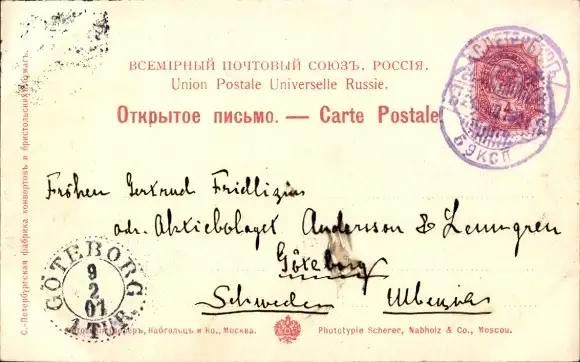 ВСЕМІРНЫЙ ПОЧТОВЫЙ СОЮЗЪ. РОССІЯ.
Union Postale Universelle Russie.
Открытое письмо. — Carte Postale
4
БЭКСП
Fröken Gertrud Fridlizius
adr. Aktiebolaget Andersson & Lenngren
Göteborg
Schweden Швеція
GÖTEBORG
9
2
01
1 TUR.
Шереръ, Набгольцъ и Ко., Москва.
Phototypie Scherer, Nabholz & Co., Moscou.
С.-Петербургская фабрика конвертовъ и бристольскихъ бумагъ.